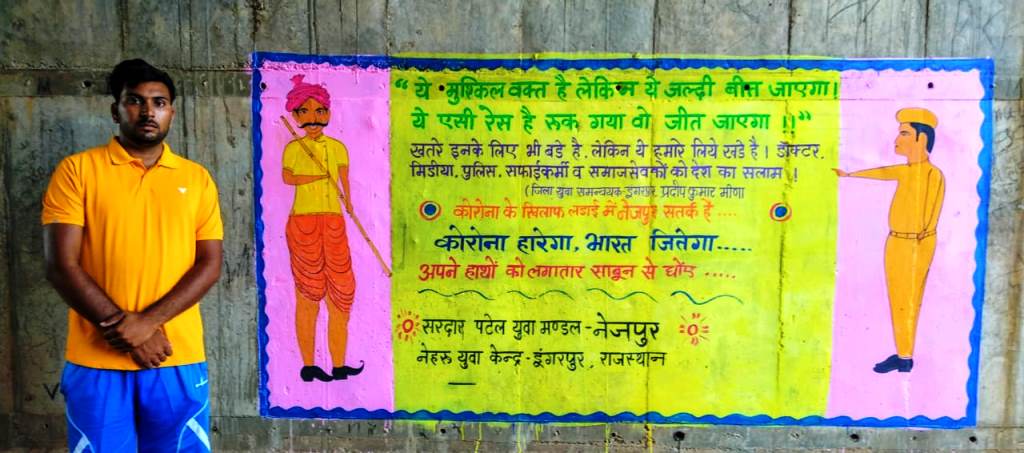 “ ये मुश्किल वक्त है लेकिन ये जल्दी बीत जाएगा।
ये एसी रेस है रूक गया वो जीत जाएगा ।।”
खतरे इनके लिए भी बडे है, लेकिन ये हमारे लिये खडे है । डॉक्टर,
मिडीया, पुलिस, सफाईकर्मी व समाजसेवकों को देश का सलाम ।
(जिला युवा समन्वयक डुंगरपुर, प्रदीप कुमार मीणा
कोरोना के खिलाफ लडाई में नेजपुर सतर्क है ....
कोरोना हारेगा, भारत जितेगा.....
अपने हाथों को लगातार साबुन से धोंए .....
सरदार पटेल युवा मण्डल - नेजपुर
नेहरू युवा केन्द्र - डूंगरपुर, राजस्थान